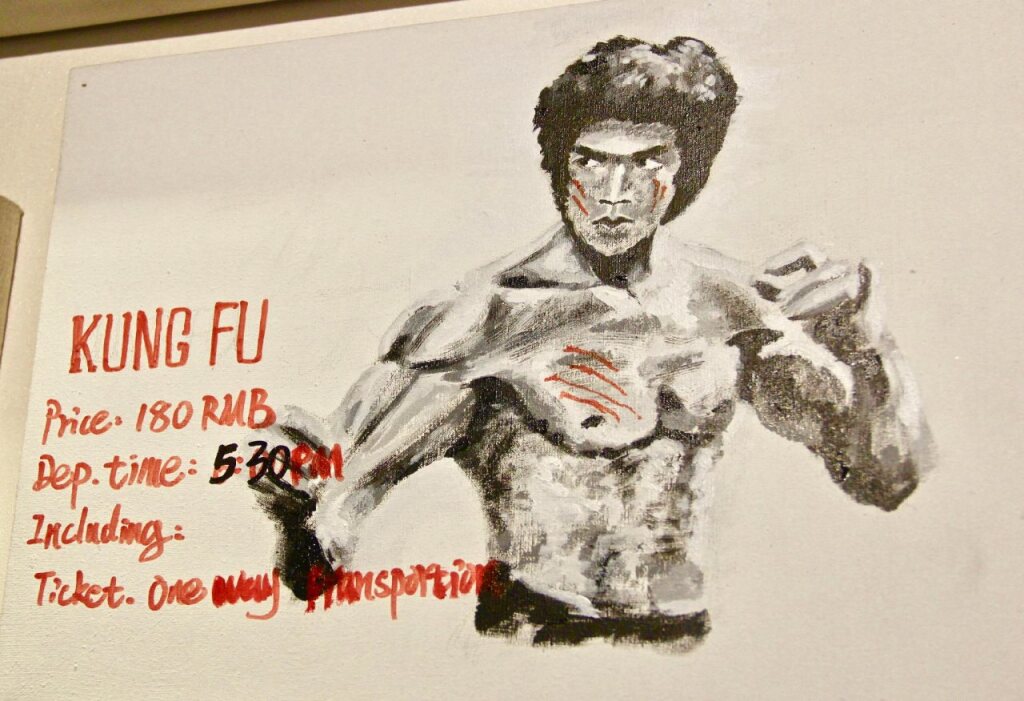 KUNG FU
Price: 180 RMB
Dep. time: 5:30PM
Including:
Ticket. One way transportion